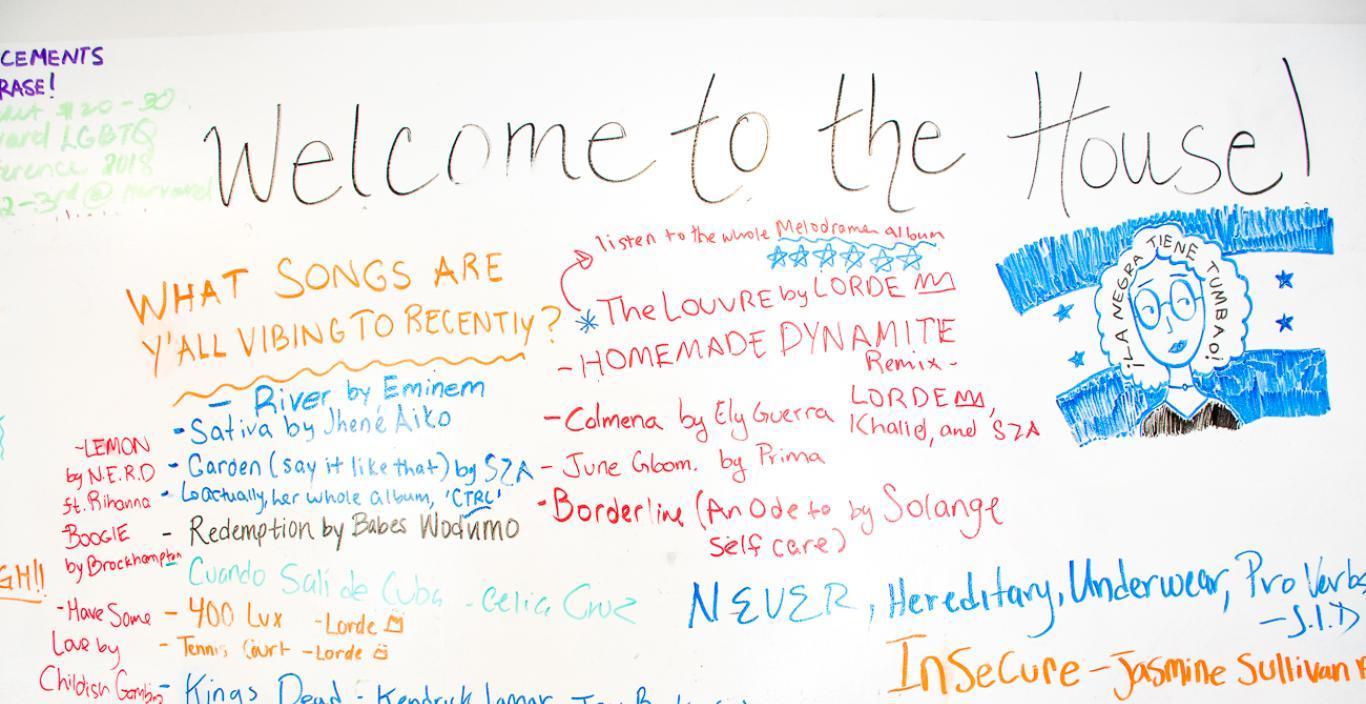 CEMENTS
RASE!
$20-30
LGBTQ
2018
2-3rd @
Welcome to the House!
WHAT SONGS ARE
Y'ALL VIBING TO RECENTLY?
- River by Eminem
- Sativa by Jhené Aiko
- Garden (say it like that) by SZA
- Loactually, her whole album, 'CTRL'
- Redemption by Babes Wodumo
Cuando Salí de Cuba - Celia Cruz
- 400 Lux - Lorde
- Tennis Court - Lorde
- Kings Dead - Kendrick Lamar
~LEMON
by N.E.R.D
ft. Rihanna
BOOGIE
by Brockhampton
GH!!
-Have Some
Love by
Childish Gambino
listen to the whole Melodrama album
* The LOUVRE by LORDE
- HOMEMADE DYNAMITE
Remix -
LORDE,
Khalid, and SZA
- Colmena by Ely Guerra
- June Gloom. by Prima
- Borderline (An Ode to by Solange
self care)
¡LA NEGRA TIENE TUMBAO!
NEVER, Hereditary, Underwear, Pro Verbs
- J.I.D
InSecure - Jasmine Sullivan